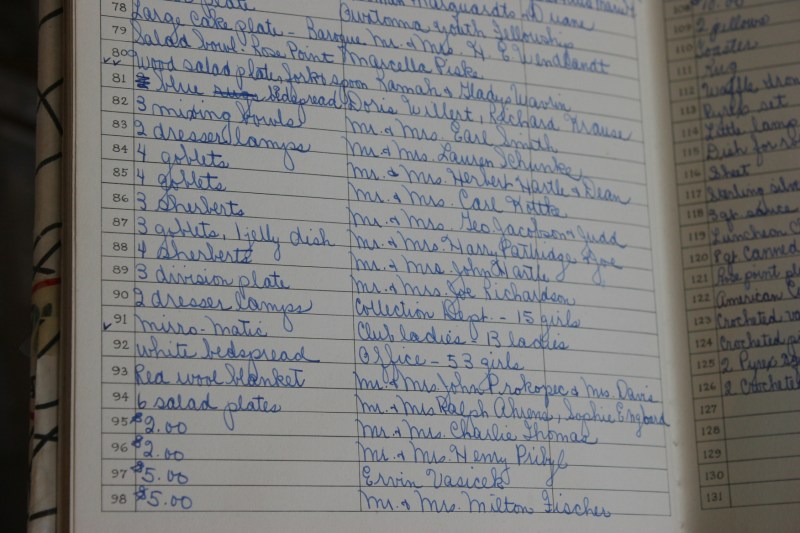 plate Marquardts, Duane
78 Large cake plate - Baroque Mr. & Mrs. H. E. Wendlandt
79 Salad bowl - Rose Point Marcella Piske
80 Wood salad plate, fork & spoon Ramah & Gladys Warin
81 blue bedspread Doris Willert, Richard Krause
82 3 mixing bowls Mr. & Mrs. Earl Smith
83 2 dresser lamps Mr. & Mrs. Lauren Schunke
84 4 goblets Mr. & Mrs. Herbert Hartle & Dean
85 4 goblets Mr. & Mrs. Carl
86 3 Sherberts Mr. & Mrs. Geo Jacobson & Judd
87 3 goblets, 1 jelly dish Mr. & Mrs. Harry Partlidge & Joe
88 4 Sherberts Mr. & Mrs. John Hartle
89 3 division plate Mr. & Mrs. Joe Richardson
90 2 dresser lamps Collection Dept. - 15 girls
91 mirro-matic Club ladies - 13 ladies
92 white bedspread Office - 53 girls
93 Red wool blanket Mr. & Mrs. John Prokopec & Mrs. Davis
94 6 salad plates Mr. & Mrs. Ralph Ahrens, Sophie
95 $2.00 Mr. & Mrs. Charlie Thomas
96 $2.00 Mr. & Mrs. Henry Pribyl
97 $5.00 Ervin Vasicek
98 $5.00 Mr. & Mrs. Milton Fischer
109 2 pillows
110 toaster
111 rug
112 Waffle
113 Pyrex set
114 Little lamp
115 Dish for
116 Sheet
117 Sterling
118 3 qt sauce
119 Luncheon
120 Pqt Canned
121 Rose point
122 American
123 Crocheted
124 Crocheted
125 2 Pyrex
126 2 Crocheted
127
128
129
130
131